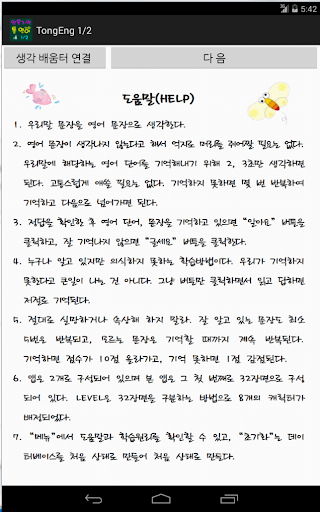 5:42
TongEng 1/2
생각 배움터 연결
다 음
도움말(HELP)
1. 우리말 문장을 영어 문장으로 생각한다.
2. 영어 문장이 생각나지 않는다고 해서 억지로 머리를 쥐어짤 필요는 없다.
우리말에 해당하는 영어 단어를 기억해내기 위해 2, 3초만 생각하면
된다. 고통스럽게 애쓸 필요는 없다. 기억하지 못하면 몇 번 반복하여
기억하고 다음으로 넘어가면 된다.
3. 정답을 확인한 후 영어 단어, 문장을 기억하고 있으면 "알아요" 버튼을
클릭하고, 잘 기억나지 않으면 "글세요" 버튼을 클릭한다.
4. 누구나 알고 있지만 의식하지 못하는 학습방법이다. 우리가 기억하지
못한다고 큰일이 나는 건 아니다. 그냥 버튼만 클릭하면서 읽고 답하면
저절로 기억된다.
5. 절대로 실망하거나 속상해 하지 말라. 잘 알고 있는 문장도 최소
5번은 반복되고, 모르는 문장은 기억할 때까지 계속 반복된다.
기억하면 점수가 10점 올라가고, 기억 못하면 1점 감점된다.
6. 앱은 2개로 구성되어 있으며 본 앱은 그 첫 번째로 32장면으로 구성
되어 있다. LEVEL은 32장면을 구분하는 방법으로 8개의 캐릭터가
배정되었다.
7. "메뉴"에서 도움말과 학습원리를 확인할 수 있고, "초기화"는 데이
터베이스를 처음 상태로 만들어 처음 상태로 만든다.